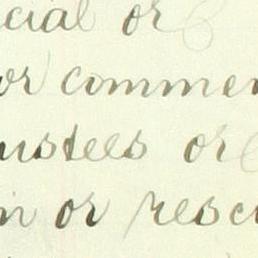 cial or
or commen
ustees or
n or resc